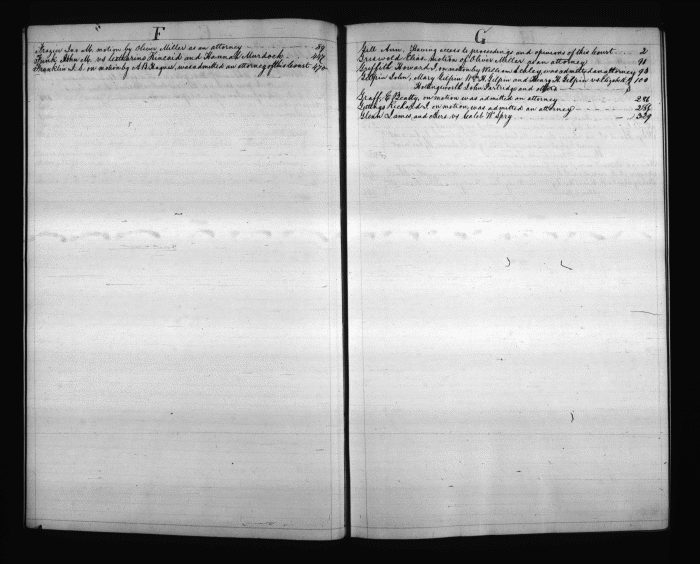 F
Frazier Jas M. motion by Oliver Miller as an attorney 89
Frink John M. vs Catharine Kincaid and Hannah Murdock 447
Franklin J. S. on motion by A B Hagner, was admitted an attorney of this Court 470
G
Gill Ann. Having access to proceedings and opinions of this Court 2
Griswold Elias motion of Oliver Miller as an attorney 91
Griffith Howard J on motion by William Schley, was admitted an attorney 93
Gilpin John, Mary Gilpin Wm H. Gilpin and Henry H Gilpin vs Elizabeth 100
Hollingsworth John Partridge and others
Graff, E Beatty, on motion was admitted an attorney
Gittings Richard J. on motion, was admitted an attorney
Glenn James, and others vs Caleb W Spry 329